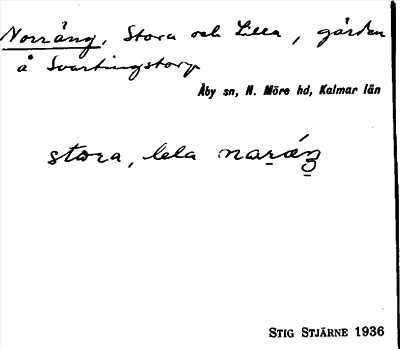 Norräng, Stora och Lilla, gärden
å Svartingstorp
Åby sn, N. Möre hd, Kalmar län
stora, lela naräŋ
STIG STJÄRNE 1936